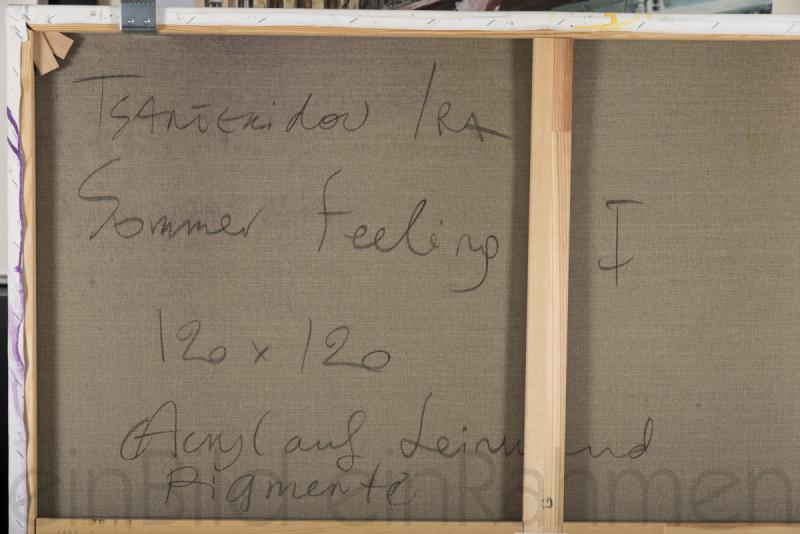 TSANTEKIDOU IRA
Sommer Feeling I
120 x 120
Acryl auf Leinwand
Pigmente
einBlick einRahmen